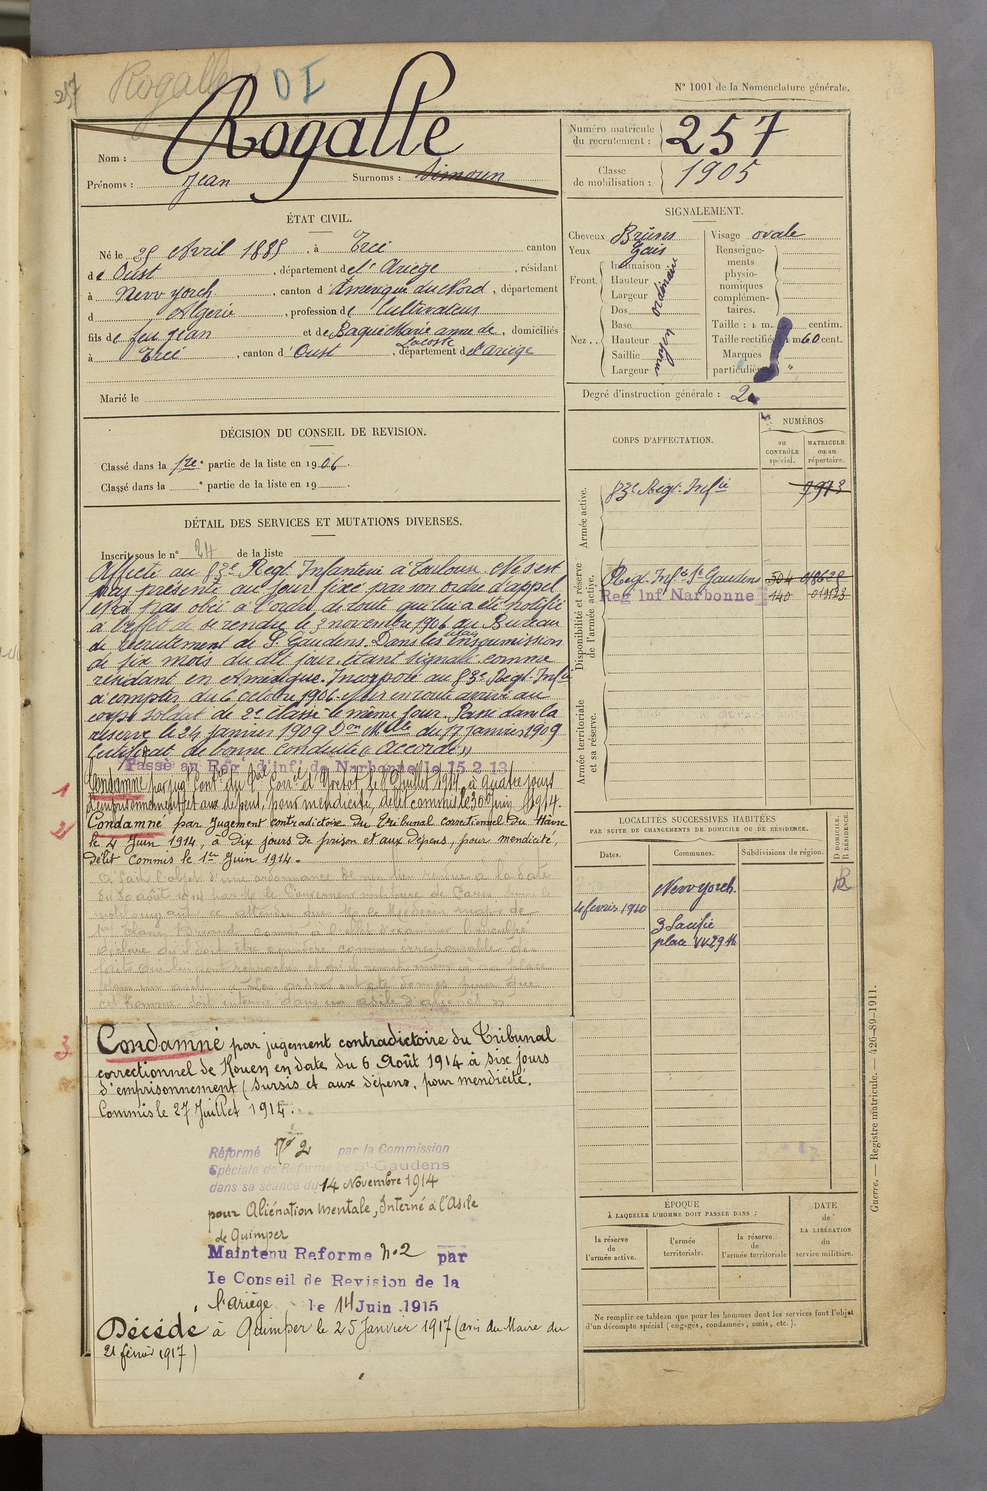 257 Rogalle DI
N° 1001 de la Nomenclature générale.
Nom : Rogalle
Prénoms : Jean Surnoms : Simoun
Numéro matricule du recrutement : 257
Classe de mobilisation : 1905
ÉTAT CIVIL.
Né le 25 Avril 1885, à Ercé canton
de Oust, département de l'Ariège, résidant
à New yorch, canton d'Amérique du Nord, département
d Algérie, profession de Cultivateur
fils de feu Jean et de Baqué Marie anne de Lacoste, domiciliés
à Ercé, canton d'Oust, département de l'ariège
Marié le
SIGNALEMENT.
Cheveux Bruns
Yeux Gris
Front. Inclinaison Hauteur Largeur ordinaire
Nez. Dos Base Hauteur Saillie Largeur moyen
Visage ovale
Renseignements physionomiques complémentaires.
Taille : 1 m. centim.
Taille rectifiée 1 m 60 cent.
Marques particulières "
Degré d'instruction générale : 2
DÉCISION DU CONSEIL DE REVISION.
Classé dans la 1re partie de la liste en 1906.
Classé dans la e partie de la liste en 19
CORPS D'AFFECTATION.
NUMÉROS
au CONTRÔLE spécial.
MATRICULE ou au répertoire.
Armée active.
83e Regt. Infie 7973
Disponibilité et réserve de l'armée active.
Regt. Infie St Gaudens 504 018628
Reg Inf Narbonne 140 019123
Armée territoriale et sa réserve.
DÉTAIL DES SERVICES ET MUTATIONS DIVERSES.
Inscrit sous le n° 24 de la liste
Affecté au 83e Regt. Infanterie à Toulouse. Ne s'est
pas présenté au jour fixé par son ordre d'appel
et n'a pas obéi à l'ordre de route qui lui a été notifié
à l'effet de se rendre le 3 novembre 1906 au Bureau
de recrutement de St Gaudens. Dans les délais insoumission
de six mois du dit jour étant signalé comme
résidant en Amérique. Incorporé au 83e Regt. Infie
à compter du 6 octobre 1906. arrivé au
corps soldat de 2e classe le même jour. Passé dans la
réserve le 24 janvier 1909 Don Mlle du 17 janvier 1909
Certificat de bonne conduite "Accordé"
Passé au Reg d'inf de Narbonne le 15.2.13
1 Condamné par jugt Contre du Bal Corel d'Yvetot le 8 Juillet 1914 à quatre jours
d'emprisonnement et aux dépens, pour mendicité, délit commis le 30 Juin 1914.
2 Condamné par jugement contradictoire du Tribunal correctionnel du Hâvre
le 4 Juin 1914, à dix jours de prison et aux dépens, pour mendicité,
délit commis le 1er Juin 1914.
A fait l'objet d'une ordonnance de non lieu rendue à la date
du 30 août 1914 par M. le Gouverneur militaire de Paris
attendu que M. le Médecin major de
1re classe Briand commis à l'effet d'examiner l'inculpé
déclare qu'il doit être considéré comme irresponsable des
faits qui lui sont reprochés et
dans un asile. Les ordres ont été donnés pour que
cet homme soit interné dans un asile d'aliénés
3 Condamné par jugement contradictoire du Tribunal
correctionnel de Rouen en date du 6 Août 1914 à six jours
d'emprisonnement (sursis et aux dépens, pour mendicité.
Commis le 27 Juillet 1914.
Réformé N° 2 par la Commission
Spéciale de Réforme de St Gaudens
dans sa séance du 14 Novembre 1914
pour Aliénation mentale, Interné à l'Asile
de Quimper
Maintenu Reforme n°2 par
le Conseil de Revision de la
l'ariège le 14 Juin 1915
Décédé à Quimper le 25 Janvier 1917 (avis du Maire du
21 février 1917)
LOCALITÉS SUCCESSIVES HABITÉES
PAR SUITE DE CHANGEMENTS DE DOMICILE OU DE RÉSIDENCE.
Dates. Communes. Subdivisions de région. D DOMICILE. R RÉSIDENCE.
New yorch R
4 février 1910
3 Pacific
place W. 29 th
ÉPOQUE
À LAQUELLE L'HOMME DOIT PASSER DANS :
la réserve de l'armée active.
l'armée territoriale.
la réserve de l'armée territoriale
DATE de LA LIBÉRATION du service militaire.
Ne remplir ce tableau que pour les hommes dont les services font l'objet
d'un décompte spécial (engagés, condamnés, omis, etc.).
Guerre. — Registre matricule. — 426-89-1911.